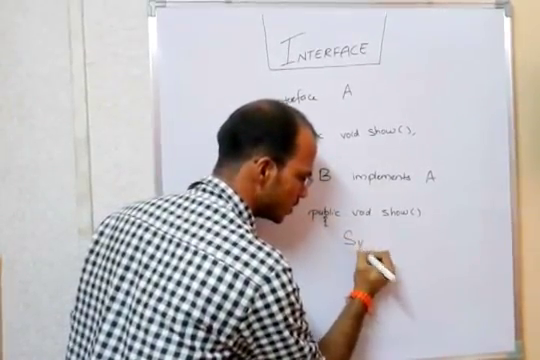 INTERFACE
A
void show();
B implements A
public void show()
{
Sy